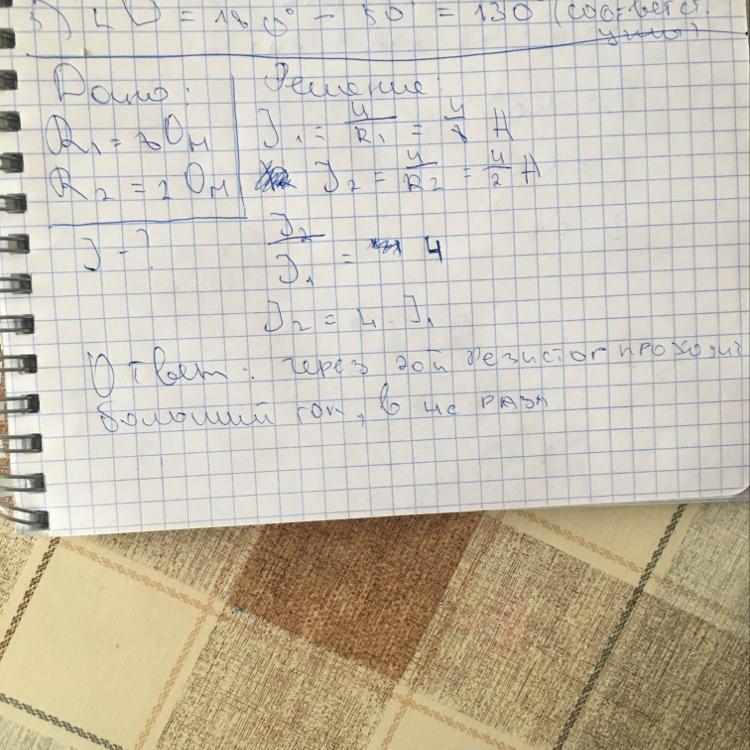 5) ∠D = 180° - 50 = 130 (соответст.
углы)
Дано:
R₁ = 8 Ом
R₂ = 2 Ом
J - ?
Решение:
J₁ = U/R₁ = U/8 А
J₂ = U/R₂ = U/2 А
J₂/J₁ = 4
J₂ = 4 · J₁
Ответ: через 2ой резистор проходит
больший ток, в 4е раза